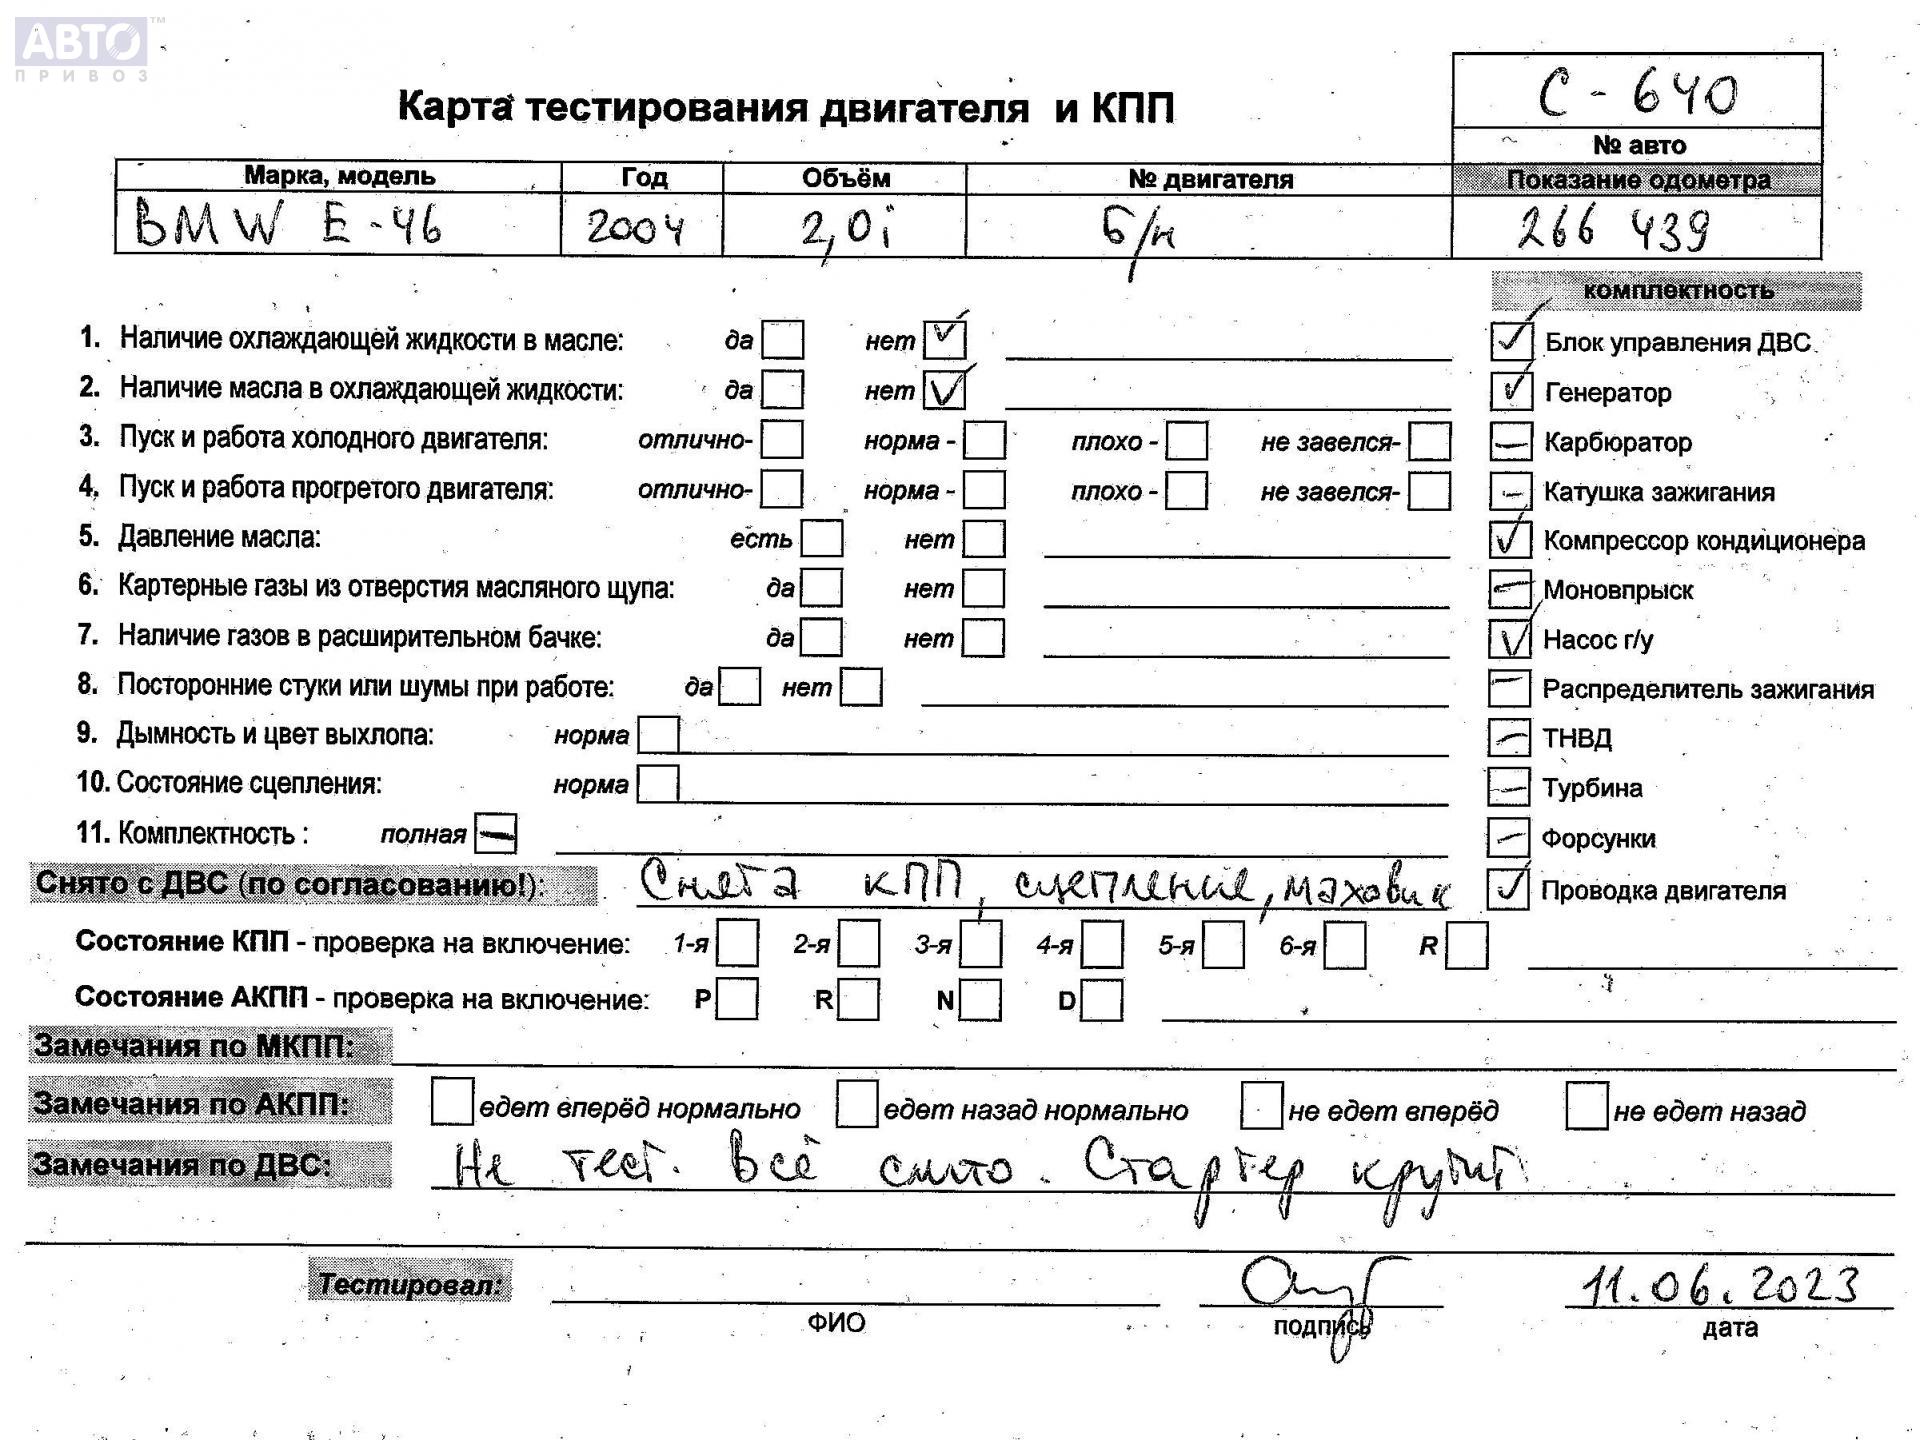 АВТО™
ПРИВОЗ
С - 640
Карта тестирования двигателя и КПП
№ авто
Марка, модель Год Объём № двигателя Показание одометра
BMW E-46 2004 2,0i Б/н 266 439
комплектность
1. Наличие охлаждающей жидкости в масле: да нет ✓ ✓ Блок управления ДВС
2. Наличие масла в охлаждающей жидкости: да нет ✓ ✓ Генератор
3. Пуск и работа холодного двигателя: отлично- норма - плохо - не завелся- — Карбюратор
4. Пуск и работа прогретого двигателя: отлично- норма - плохо - не завелся- — Катушка зажигания
5. Давление масла: есть нет ✓ Компрессор кондиционера
6. Картерные газы из отверстия масляного щупа: да нет — Моновпрыск
7. Наличие газов в расширительном бачке: да нет ✓ Насос г/у
8. Посторонние стуки или шумы при работе: да нет — Распределитель зажигания
9. Дымность и цвет выхлопа: норма — ТНВД
10. Состояние сцепления: норма — Турбина
11. Комплектность : полная — — Форсунки
Снято с ДВС (по согласованию!): Снята КПП, сцепление, маховик ✓ Проводка двигателя
Состояние КПП - проверка на включение: 1-я 2-я 3-я 4-я 5-я 6-я R
Состояние АКПП - проверка на включение: P R N D
Замечания по МКПП:
Замечания по АКПП: едет вперёд нормально едет назад нормально не едет вперёд не едет назад
Замечания по ДВС: Не тест. Всё снято. Стартер крутит.
Тестировал: 11.06.2023
ФИО подпись дата